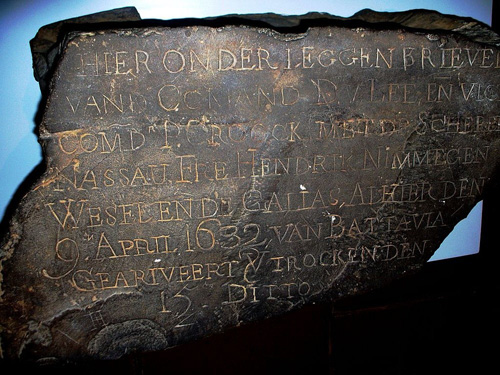 HIER ONDER LEGGEN BRIEVEN
VAND COMAND D. V. LEE, EN VIC
COMD P. CROOCK, MET D SCHEEPE
NASSAU, FRE HENDRIK NIMMEGEN
WESEL EN D. GALIAS, ALHIER DEN
9 APRIL 1632, VAN BATTAVIA
GEARIVEERT & VTROCKEN DEN
15 DITTO